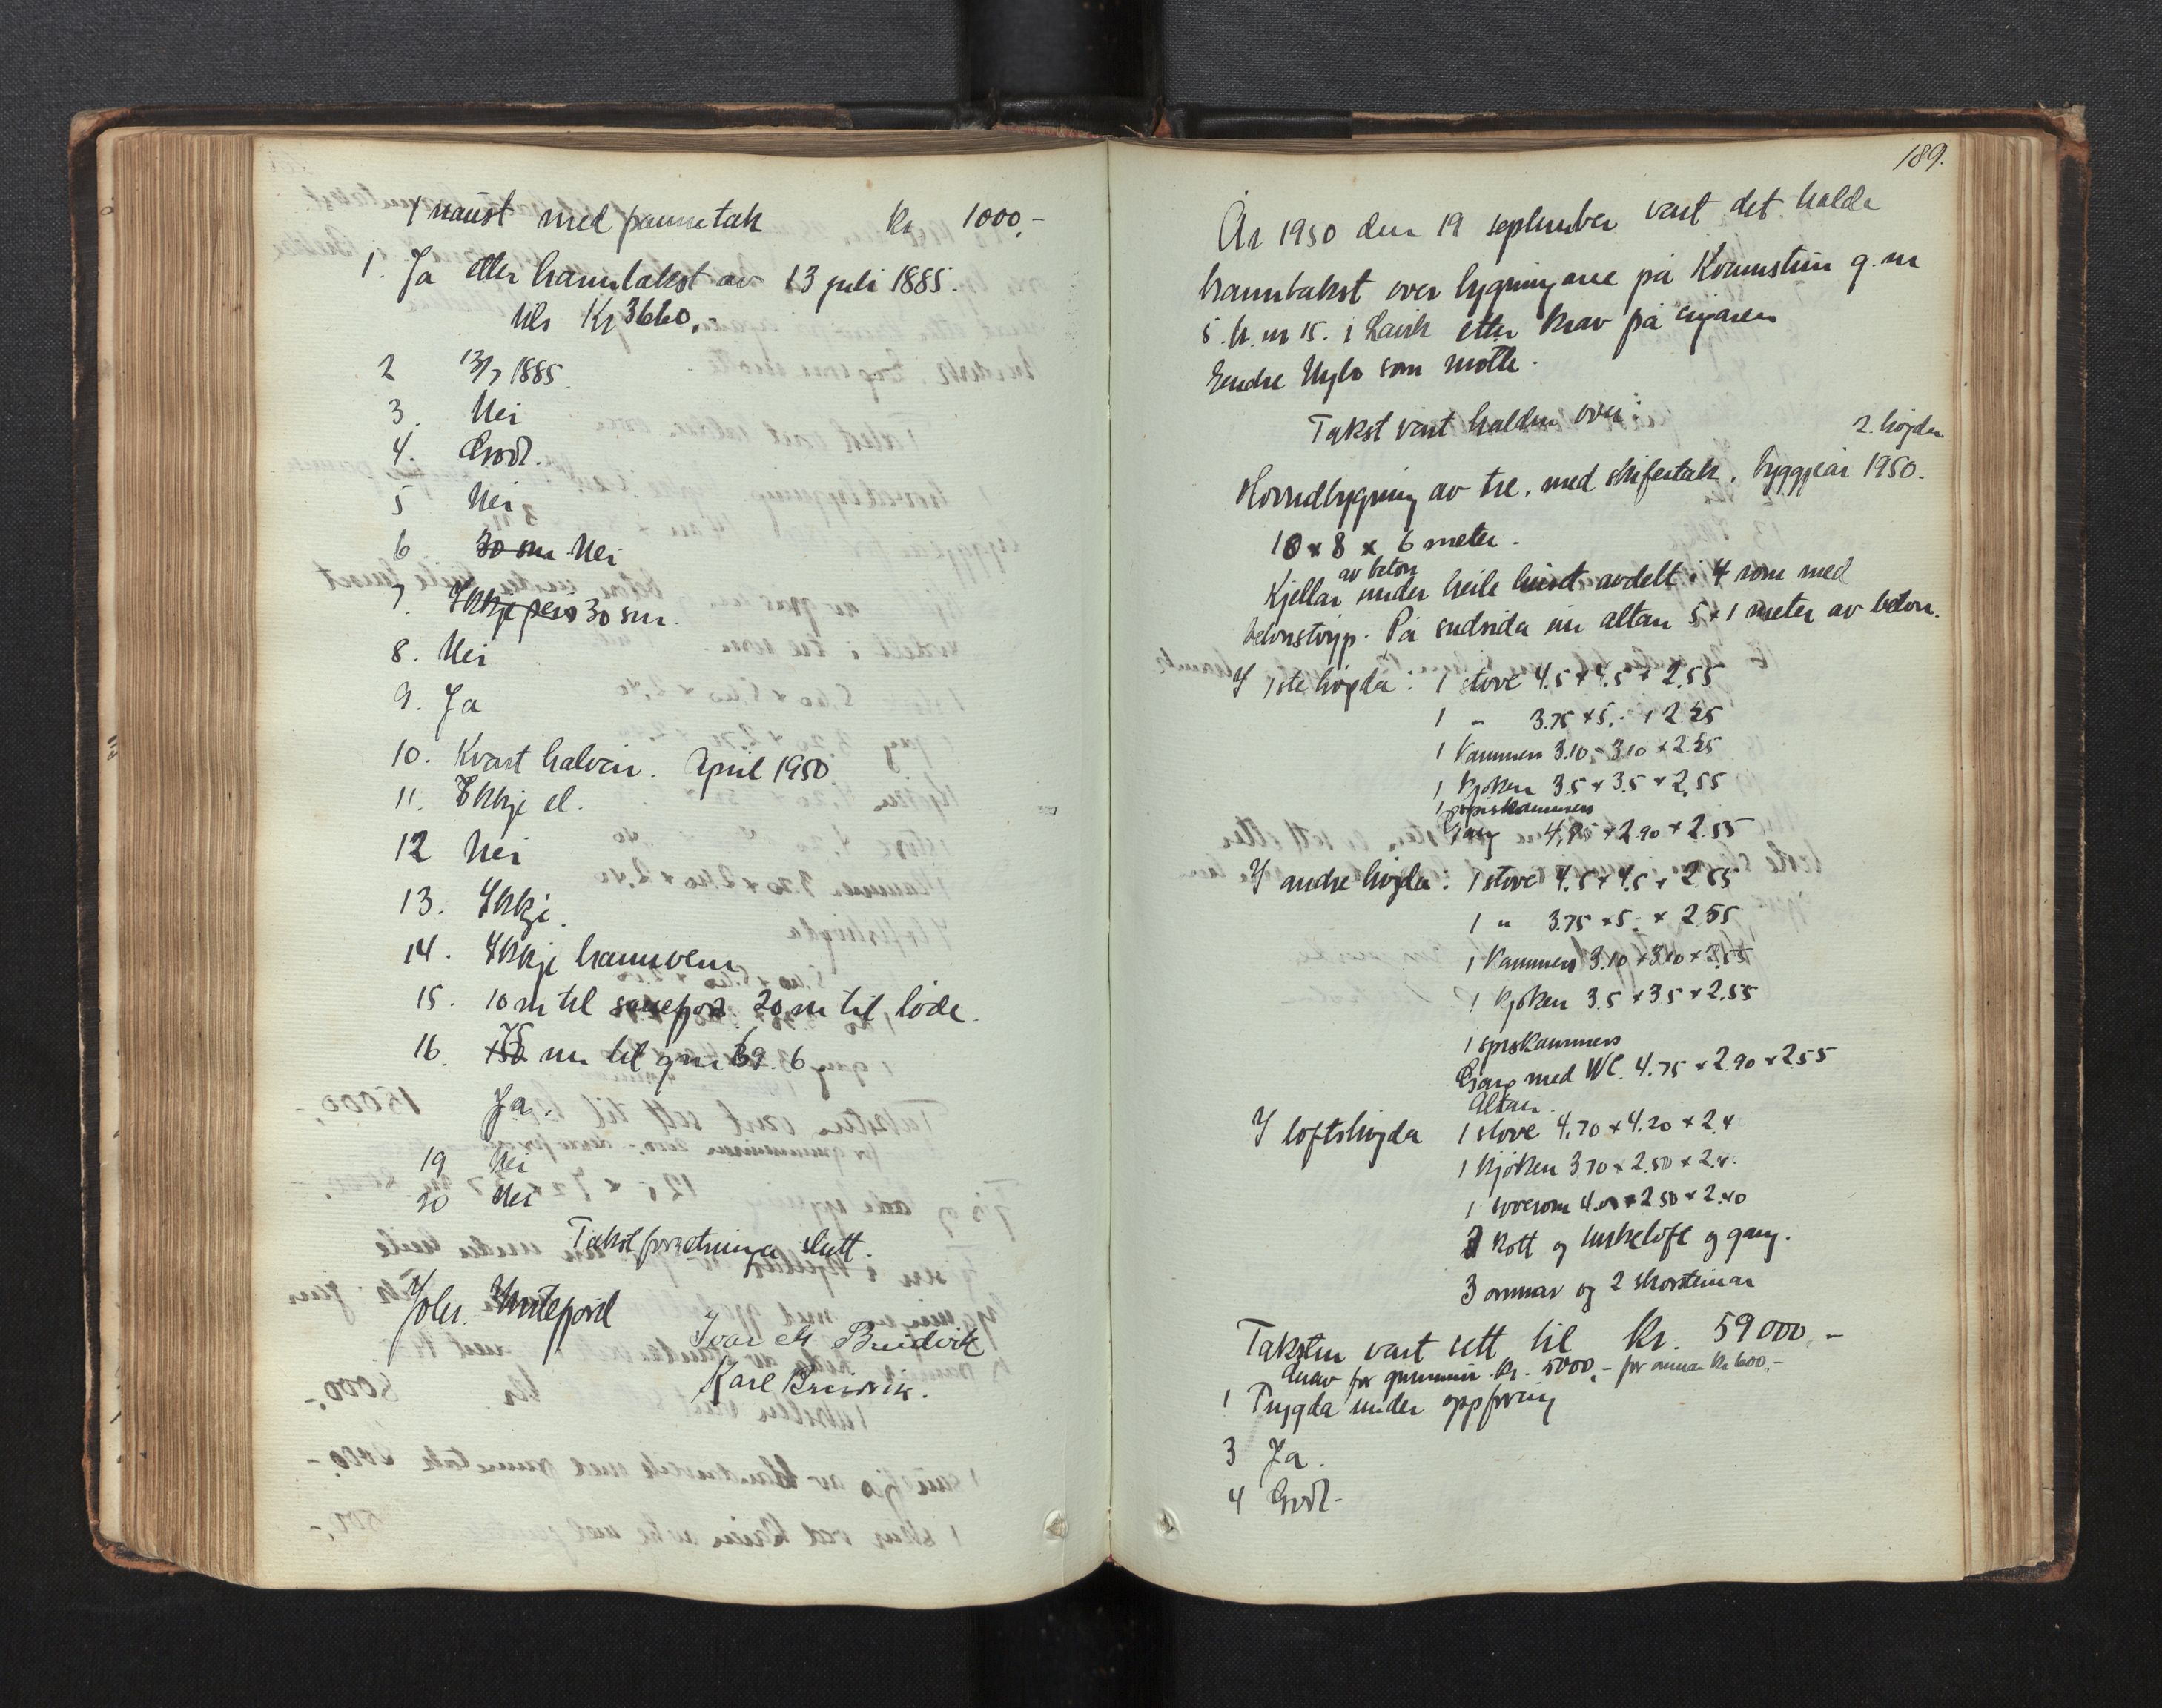 1 naust med pannetak Kr 1000,-
1. Ja etter branntakst av 13 juli 1885.
Kr 3660,-
2 13/7 1885.
3. Nei
4. God.
5 Nei
6 30 sm Nei
7. Ikkje peis 30 sm.
8. Nei
9. Ja
10. Kvart halvår. April 1950.
11. Ikkje el.
12 Nei
13. Ikkje.
14. Ikkje brannvern
15. 10 m til sauefjos. 20 m til löde.
16. 75 m til gnr 69. 6
Ja.
19 Nei
20 Nei
Takstforretninga slutt.
Johs. Ivar M Breidvik
Karl Breidvik.
189.
År 1950 den 19 september vart det halde
branntakst over bygningane på Kvamstun g. nr
5. b. nr 15. i Lavik etter krav på eigaren
Endre som møtte.
Takst vart halden over:
2 högder
Hovudbygning av tre, med skifertak. byggjeår 1950.
10 x 8 x 6 meter.
av beton
Kjellar under heile huset avdelt i 4 rom med
betonstöyp. På sudsida ein altan 5 x 1 meter av beton.
I 1ste högda: 1 stove 4.5 x 4.5 x 2.55
1 " 3.75 x 5.- x 2.55
1 Kammers 3.10 x 3.10 x 2.55
1 Kjöken 3.5 x 3.5 x 2.55
1 spiskammers
Gang 4.75 x 2.90 x 2.55
I andre högda: 1 stove 4.5 x 4.5 x 2.55
1 " 3.75 x 5.- x 2.55
1 Kammers 3.10 x 3.10 x 2.55
1 Kjöken 3.5 x 3.5 x 2.55
1 spiskammers
Gang med WC. 4.75 x 2.90 x 2.55
Altan.
I loftshögda 1 stove 4.70 x 4.20 x 2.4
1 Kjöken 3.70 x 2.50 x 2.4.
1 soverom 4.00 x 2.50 x 2.40
2 Kott og turkeloft og gang.
3 omnar og 2 skorsteinar
Taksten vart sett til Kr. 59000,-
derav for grunnmur kr. 5000,- for omnar kr 600,-
1 Trygda under oppföring
3 Ja.
4 God.-